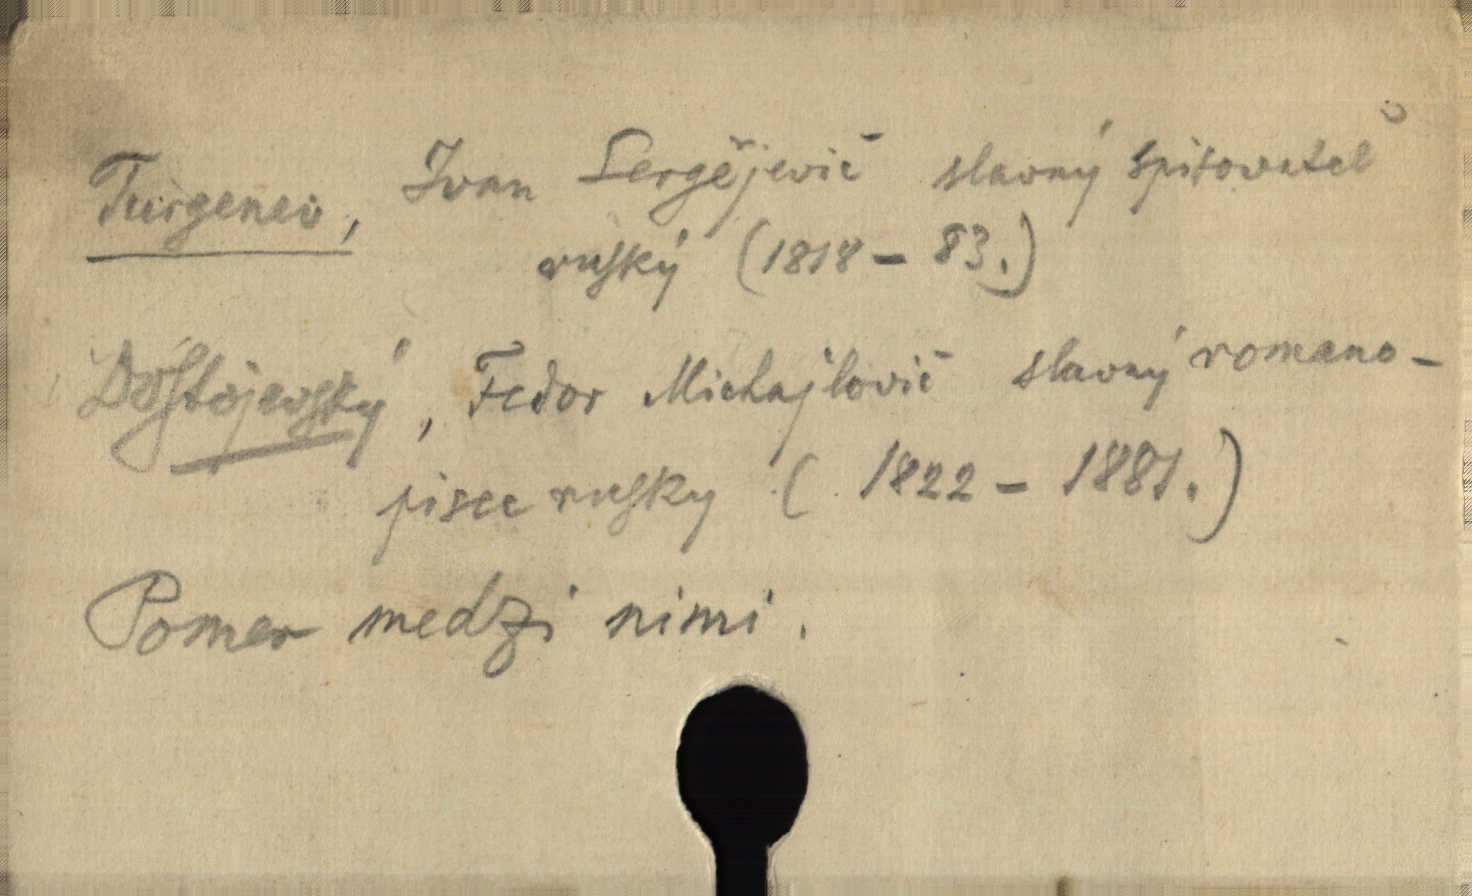 Turgenev, Ivan Sergějevič slavný spisovatel
ruský (1818 – 83.)
Dostojevský, Fedor Michajlovič slavný romano-
pisec rusky (1822 – 1881.)
Pomer medzi nimi.